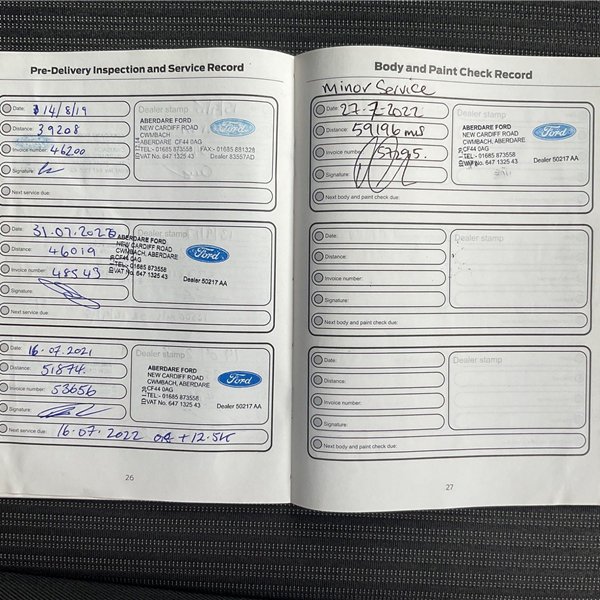 Pre-Delivery Inspection and Service Record
Date: 14/8/19
Distance: 39208
Invoice number: 46200
Signature:
Next service due:
Dealer stamp
ABERDARE FORD
NEW CARDIFF ROAD
CWMBACH
ABERDARE CF44 0AG
TEL:- 01685 873558 FAX - 01685 881328
VAT No. 647 1325 43 Dealer 83557AD
Ford
Date: 31.07.2020
Distance: 46019
Invoice number: 48543
Signature:
Next service due:
ABERDARE FORD
NEW CARDIFF ROAD
CWMBACH, ABERDARE
CF44 0AG
TEL:- 01685 873558
VAT No. 647 1325 43
Dealer 50217 AA
Ford
Date: 16.07.2021
Distance: 51874
Invoice number: 53656
Signature:
Next service due: 16.07.2022 OR +12.5K
Dealer stamp
ABERDARE FORD
NEW CARDIFF ROAD
CWMBACH, ABERDARE
CF44 0AG
TEL:- 01685 873558
VAT No. 647 1325 43
Dealer 50217 AA
Ford
26
Body and Paint Check Record
Minor Service
Date: 27-7-2022
Distance: 59196 mls
Invoice number: 57295.
Signature:
Next body and paint check due:
Dealer stamp
ABERDARE FORD
NEW CARDIFF ROAD
CWMBACH, ABERDARE
CF44 0AG
TEL:- 01685 873558
VAT No. 647 1325 43
Dealer 50217 AA
Ford
Date:
Distance:
Invoice number:
Signature:
Next body and paint check due:
Dealer stamp
Date:
Distance:
Invoice number:
Signature:
Next body and paint check due:
Dealer stamp
27